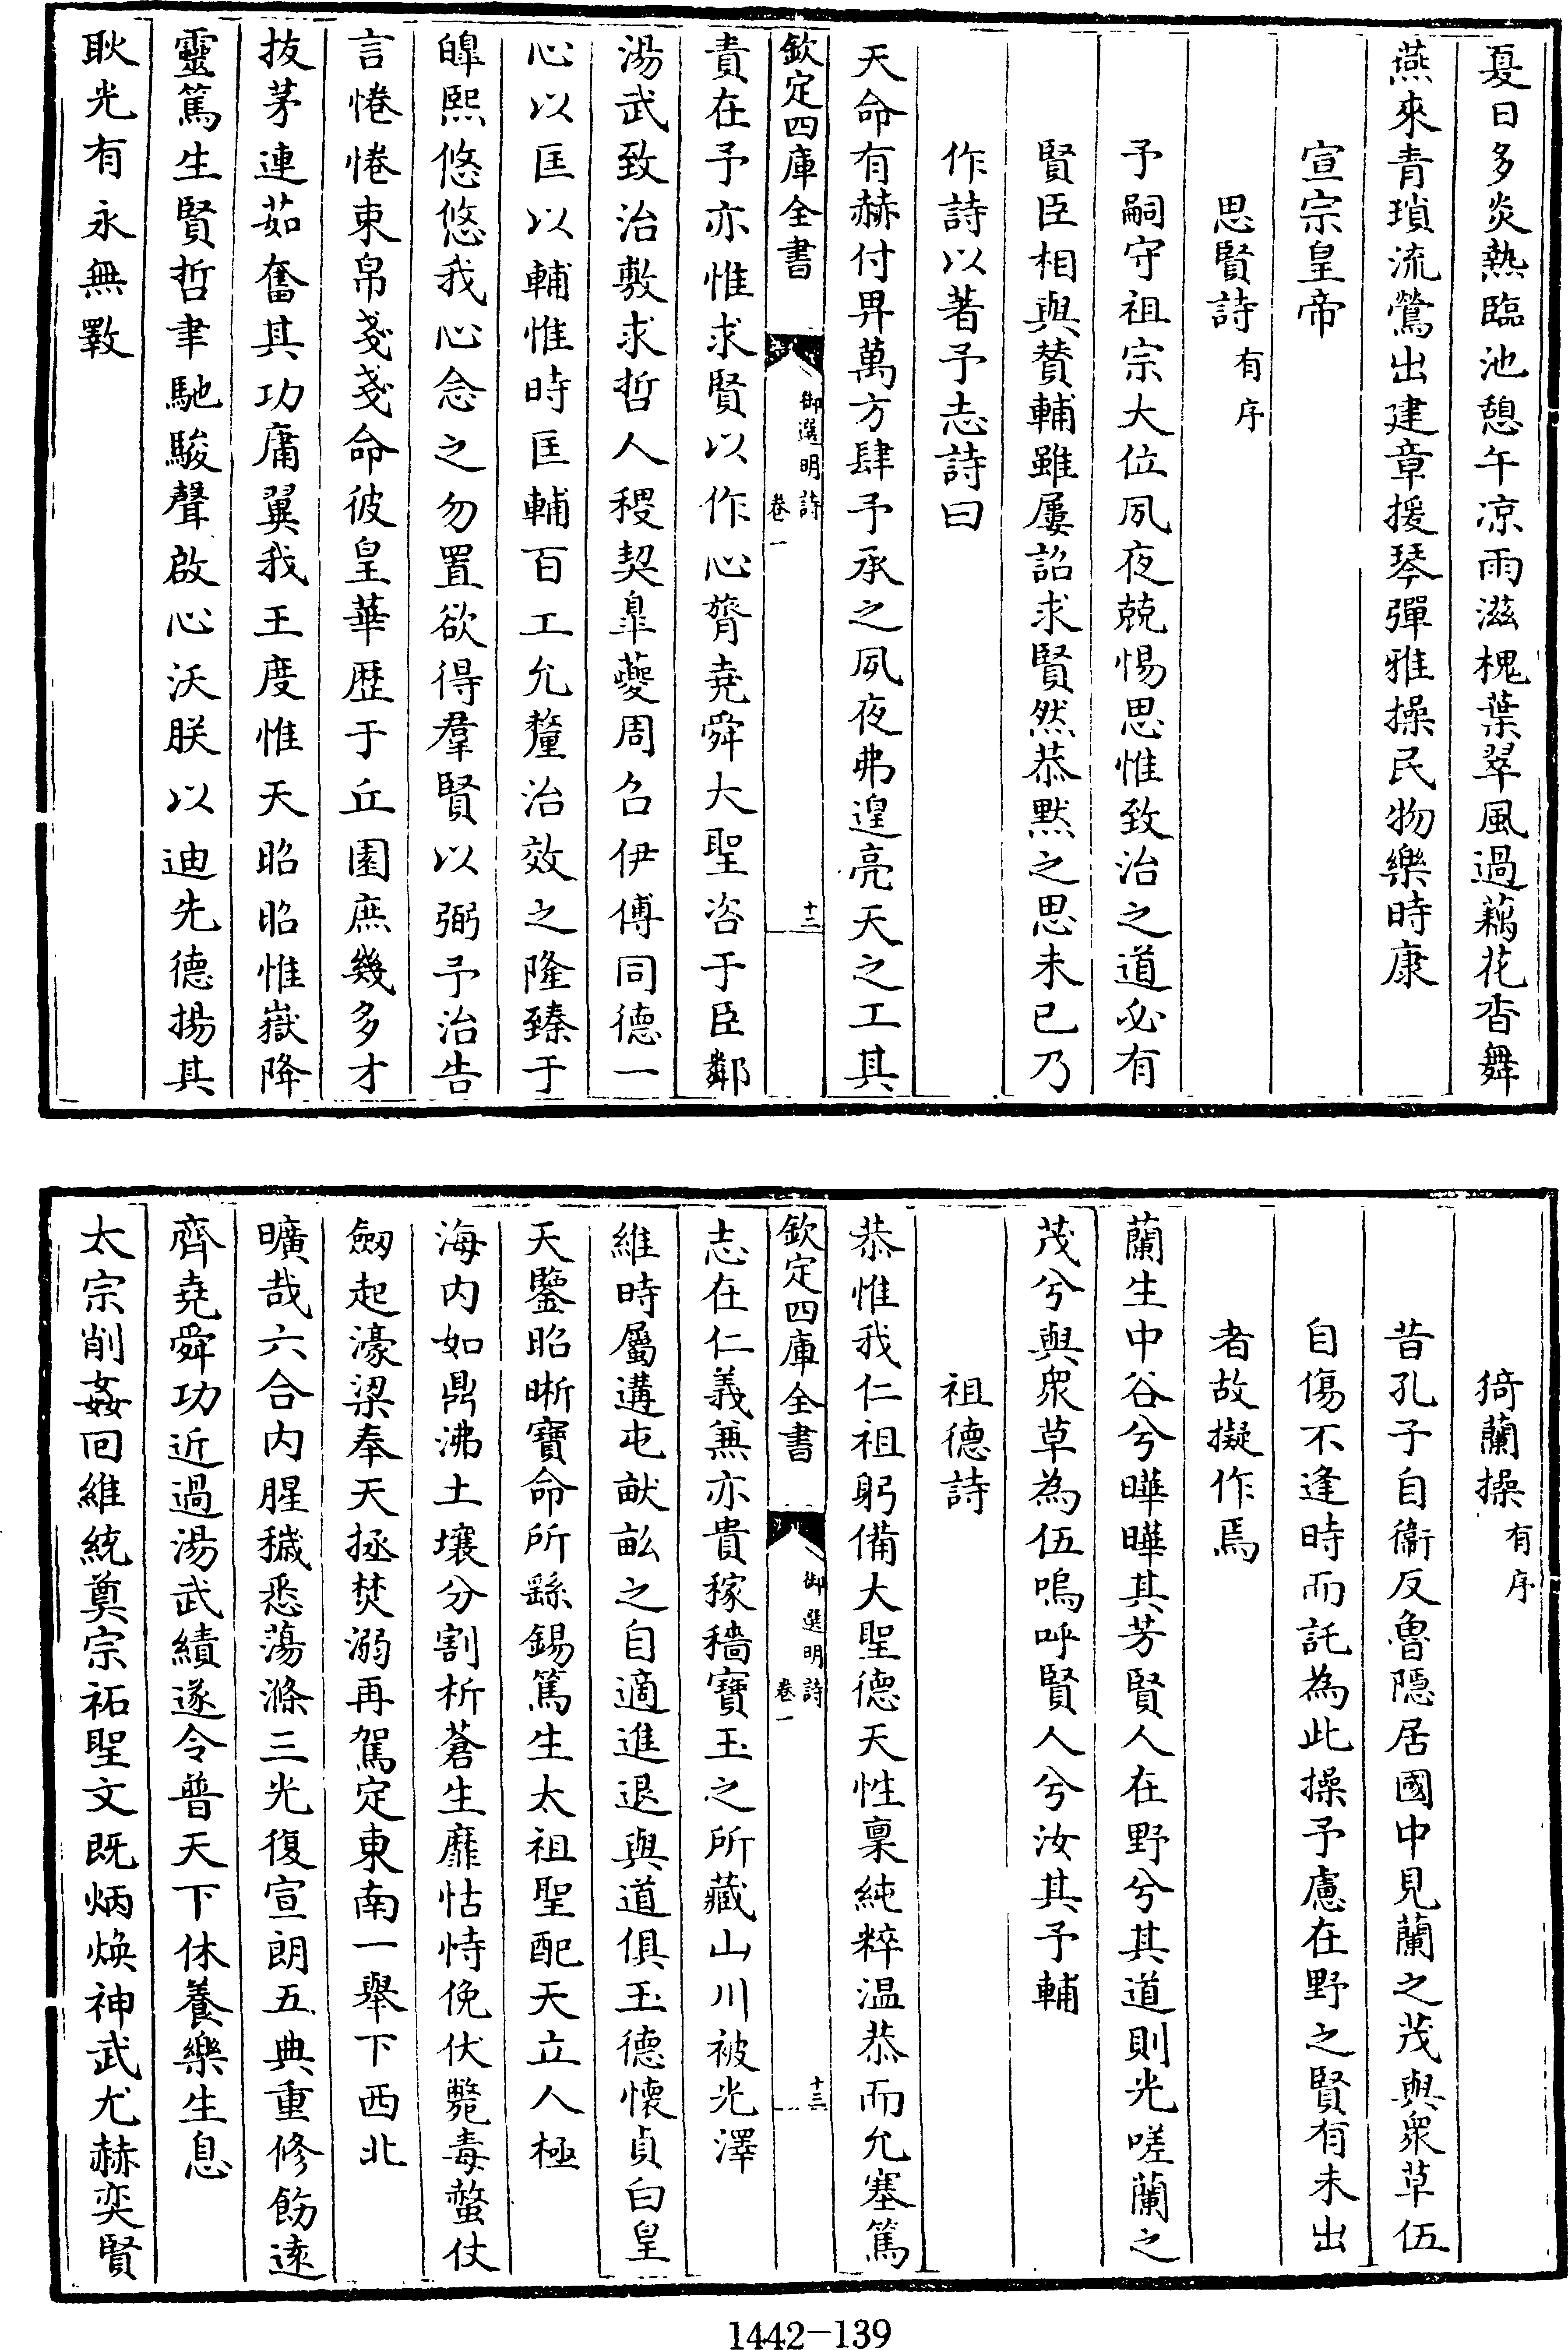 夏日多炎熱臨池憩午凉雨滋槐葉翠風過藕花香舞
燕來青瑣流鶯出建章援琴彈雅操民物樂時康
宣宗皇帝
思賢詩有序
予嗣守祖宗大位夙夜兢惕思惟致治之道必有
賢臣相與贊輔雖屢詔求賢然恭默之思未已乃
作詩以著予志詩曰
天命有赫付畀萬方肆予承之夙夜弗遑亮天之工其
欽定四庫全書 御選明詩 卷一 十二
責在予亦惟求賢以作心膂堯舜大聖咨于臣鄰
湯武致治敷求哲人稷契臯夔周召伊傅同德一
心以匡以輔惟時匡輔百工允釐治效之隆臻于
皥熙悠悠我心念之勿置欲得羣賢以弼予治告
言惓惓束帛戔戔命彼皇華歷于丘園庶幾多才
拔茅連茹奮其功庸翼我王度惟天昭昭惟嶽降
靈篤生賢哲聿馳駿聲啟心沃朕以迪先德揚其
耿光有永無斁
猗蘭操有序
昔孔子自衞反魯隱居國中見蘭之茂與衆草伍
自傷不逢時而託為此操予慮在野之賢有未出
者故擬作焉
蘭生中谷兮曄曄其芳賢人在野兮其道則光嗟蘭之
茂兮與衆草為伍嗚呼賢人兮汝其予輔
祖德詩
恭惟我仁祖躬備大聖德天性稟純粹温恭而允塞篤
欽定四庫全書 御選明詩 卷一 十三
志在仁義兼亦貴稼穡寶玉之所藏山川被光澤
維時屬遘屯畎畝之自適進退與道俱玉德懷貞白皇
天鑒昭晣寶命所繇錫篤生太祖聖配天立人極
海内如鼎沸土壤分割析蒼生靡怙恃俛伏斃毒螫仗
劔起濠梁奉天拯焚溺再駕定東南一舉下西北
曠哉六合内腥穢悉蕩滌三光復宣朗五典重修飭遠
齊堯舜功近過湯武績遂令普天下休養樂生息
太宗削姦回維統奠宗祏聖文既炳煥神武尤赫奕賢
1442-139